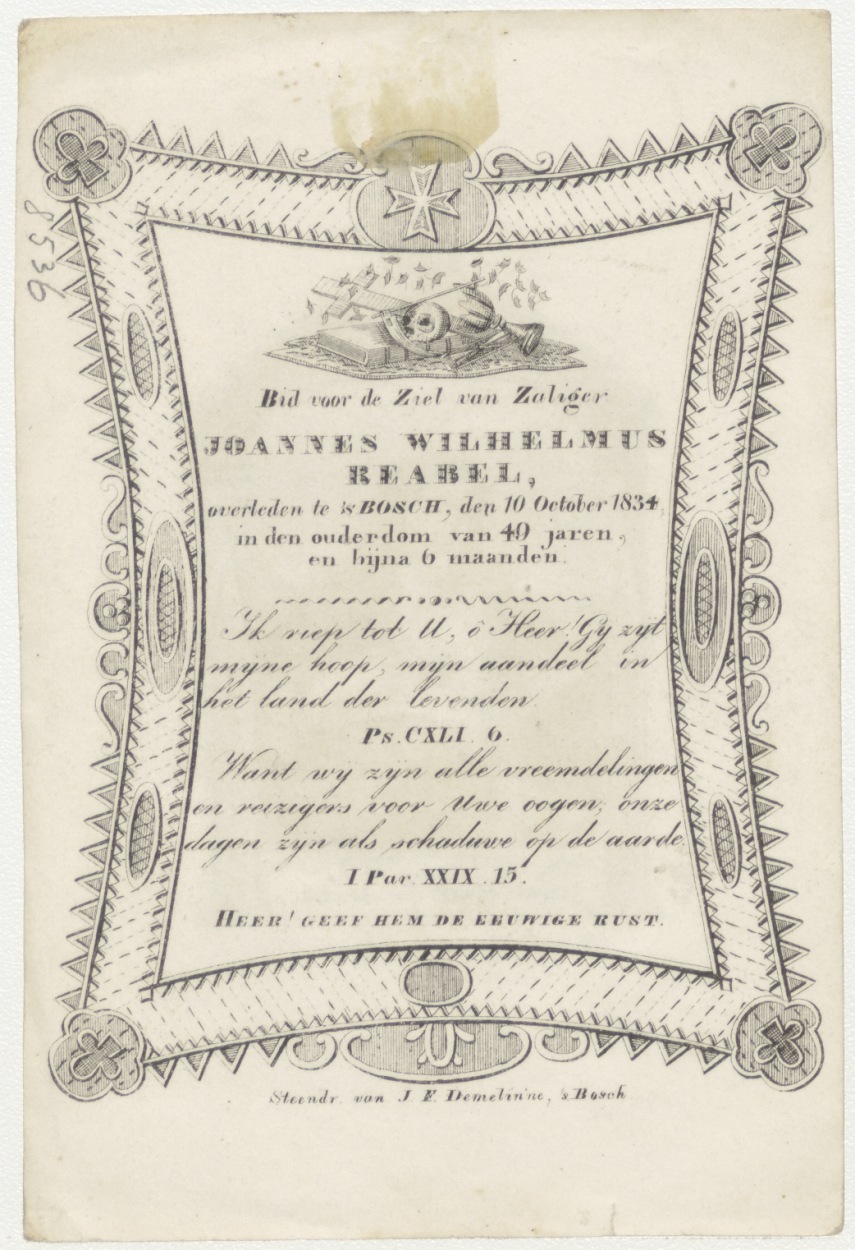 8536
Bid voor de Ziel van Zaliger
JOANNES WILHELMUS
REABEL,
overleden te 's BOSCH, den 10 October 1834,
in den ouderdom van 49 jaren,
en bijna 6 maanden.
Ik riep tot U, ô Heer! Gy zyt
myne hoop, mijn aandeel in
het land der levenden.
Ps. CXLI. 6.
Want wy zyn alle vreemdelingen
en reizigers voor Uwe oogen; onze
dagen zyn als schaduwe op de aarde.
I Par. XXIX. 15.
HEER! GEEF HEM DE EEUWIGE RUST.
Steendr. van J. F. Demelinne, 's Bosch